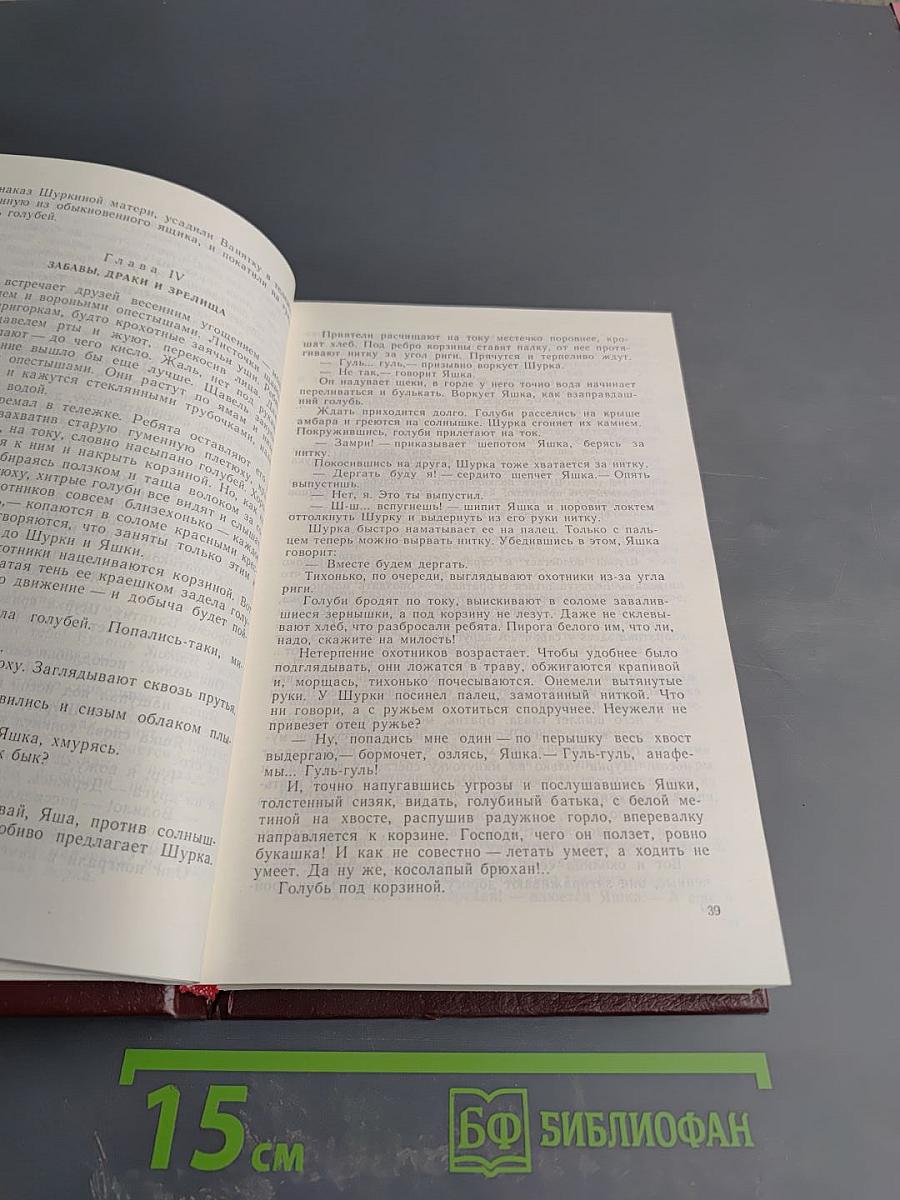 наказ Шуркиной матери, усадили Ванятку в
из обыкновенного ящика, и покатили на
голубей.
Глава IV
ЗАБАВЫ, ДРАКИ И ЗРЕЛИЩА
встречает друзей весенним угощением
и вороньими опестышами. Листочки
пригоркам, будто крохотные заячьи уши.
рты и жуют, перекосив лица.
— до чего кисло. Жаль, нет под
вышло бы еще лучше. Щавель
опестышами. Они растут по ямам и
и кажутся стеклянными трубочками,
водой.
в тележке. Ребята оставляют его
захватив старую гуменную плетюху.
на току, словно насыпано голубей.
к ним и накрыть корзиной. Но, как
ползком и таща волоком за
хитрые голуби все видят и слышат
совсем близехонько —
— копаются в соломе красными
что заняты только этим
до Шурки и Яшки.
нацеливаются корзиной. Вот
тень ее краешком задела
движение — и добыча будет
голубей. Попались-таки,
Заглядывают сквозь прутья.
и сизым облаком
Яшка, хмурясь.
бык?
Яша, против
предлагает Шурка.
Приятели расчищают на току местечко поровнее, кро-
шат хлеб. Под ребро корзины ставят палку, от нее протя-
гивают нитку за угол риги. Прячутся и терпеливо ждут.
— Гуль... гуль,— призывно воркует Шурка.
— Не так,— говорит Яшка.
Он надувает щеки, в горле у него точно вода начинает
переливаться и булькать. Воркует Яшка, как взаправдаш-
ний голубь.
Ждать приходится долго. Голуби расселись на крыше
амбара и греются на солнышке. Шурка сгоняет их камнем.
Покружившись, голуби прилетают на ток.
— Замри! — приказывает шепотом Яшка, берясь за
нитку.
Покосившись на друга, Шурка тоже хватается за нитку.
— Дергать буду я! — сердито шепчет Яшка.— Опять
выпустишь.
— Нет, я. Это ты выпустил.
— Ш-ш... вспугнешь! — шипит Яшка и норовит локтем
оттолкнуть Шурку и выдернуть из его руки нитку.
Шурка быстро наматывает ее на палец. Только с паль-
цем теперь можно вырвать нитку. Убедившись в этом, Яшка
говорит:
— Вместе будем дергать.
Тихонько, по очереди, выглядывают охотники из-за угла
риги.
Голуби бродят по току, выискивают в соломе завалив-
шиеся зернышки, а под корзину не лезут. Даже не склевы-
вают хлеб, что разбросали ребята. Пирога белого им, что ли,
надо, скажите на милость!
Нетерпение охотников возрастает. Чтобы удобнее было
подглядывать, они ложатся в траву, обжигаются крапивой
и, морщась, тихонько почесываются. Онемели вытянутые
руки. У Шурки посинел палец, замотанный ниткой. Что
ни говори, а с ружьем охотиться сподручнее. Неужели не
привезет отец ружье?
— Ну, попадись мне один — по перышку весь хвост
выдергаю,— бормочет, озлясь, Яшка.— Гуль-гуль, анафе-
мы... Гуль-гуль!
И, точно напугавшись угрозы и послушавшись Яшки,
толстенный сизяк, видать, голубиный батька, с белой ме-
тиной на хвосте, распушив радужное горло, вперевалку
направляется к корзине. Господи, чего он ползет, ровно
букашка! И как не совестно — летать умеет, а ходить не
умеет. Да ну же, косолапый брюхан!..
Голубь под корзиной.
39
15 см
БФ БИБЛИОФАН